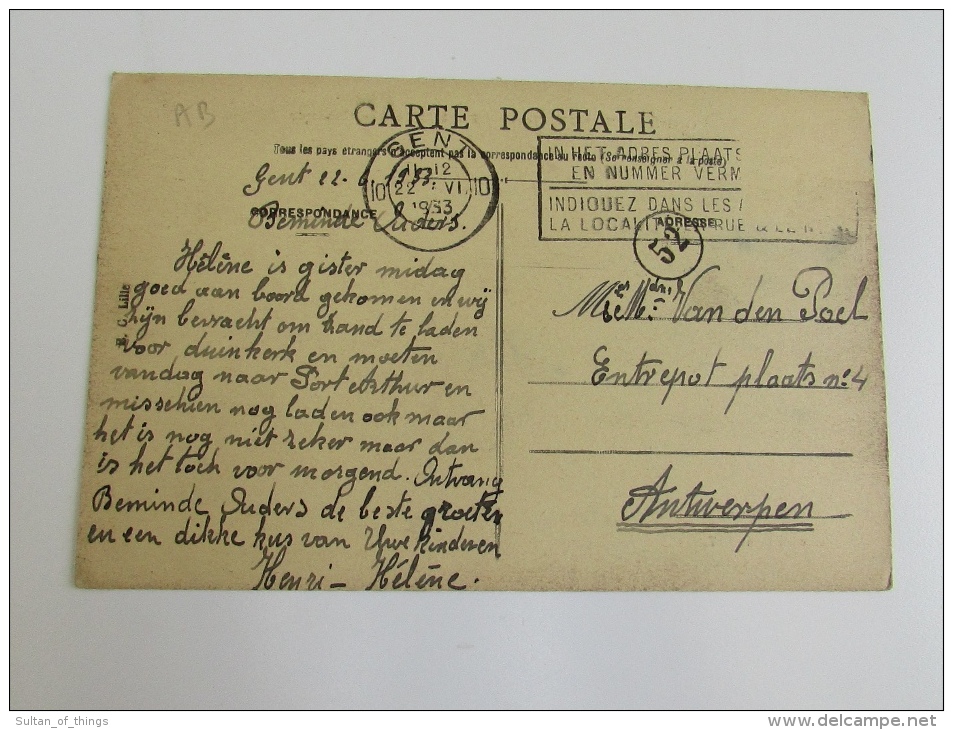 AB
CARTE POSTALE
Tous les pays étrangers n'acceptent pas la correspondance au recto (Se renseigner à la poste)
GENT
11-12
22 VI
1933
10 10
IN HET ADRES PLAATS
EN NUMMER VERM
INDIQUEZ DANS LES
LA LOCALITE RUE & LE N
52
CORRESPONDANCE
ADRESSE
Gent 22-6 1933
Beminde Ouders.
Hélène is gister midag
goed aan boord gekomen en wij
zijn bevracht om zand te laden
voor duinkerk en moeten
vandag naar Port Arthur en
misschien nog laden ook maar
het is nog niet zeker maar dan
is het toch voor morgend. Ontvang
Beminde Ouders de beste groeten
en een dikke kus van Uwe kinderen
Henri - Hélène.
Van den Poel
Entrepot plaats no. 4
Antwerpen
Lille
Sultan_of_things
www.delcampe.net